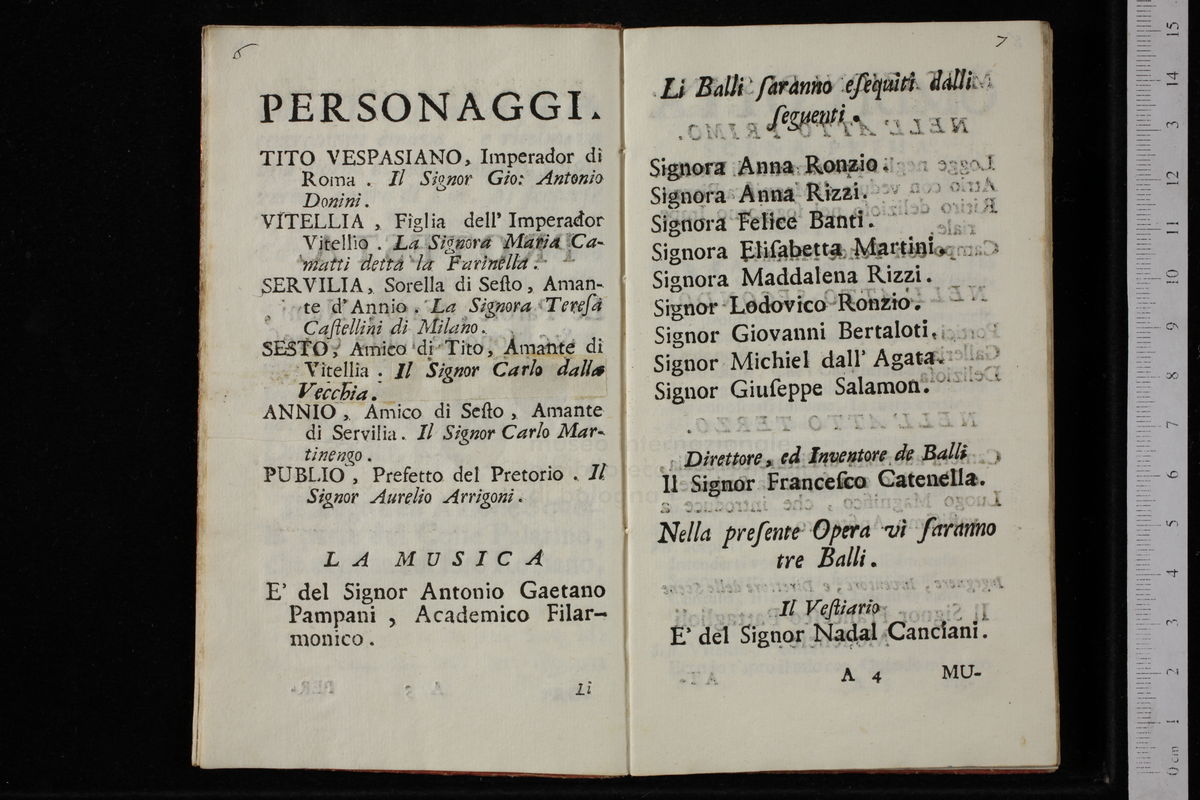 6
PERSONAGGI.
TITO VESPASIANO, Imperador di
Roma . Il Signor Gio: Antonio
Donini.
VITELLIA , Figlia dell' Imperador
Vitellio . La Signora Maria Ca-
matti detta la Farinella .
SERVILIA, Sorella di Seſto, Aman-
te d'Annio . La Signora Tereſa
Caſtellini di Milano.
SESTO, Amico di Tito, Amante di
Vitellia . Il Signor Carlo dalla
Vecchia.
ANNIO , Amico di Seſto , Amante
di Servilia. Il Signor Carlo Mar-
tinengo .
PUBLIO , Prefetto del Pretorio . Il
Signor Aurelio Arrigoni.
LA MUSICA
E' del Signor Antonio Gaetano
Pampani , Academico Filar-
monico .
Li
7
Li Balli ſaranno eſequiti dalli
ſeguenti .
Signora Anna Ronzio.
Signora Anna Rizzi.
Signora Felice Banti.
Signora Eliſabetta Martini.
Signora Maddalena Rizzi.
Signor Lodovico Ronzio.
Signor Giovanni Bertaloti.
Signor Michiel dall' Agata.
Signor Giuſeppe Salamon.
Direttore, ed Inventore de Balli
Il Signor Franceſco Catenella.
Nella preſente Opera vi ſaranno
tre Balli .
Il Veſtiario
E' del Signor Nadal Canciani.
A 4 MU-
15
14
13
12
11
10
9
8
7
6
5
4
3
2
1
0 cm